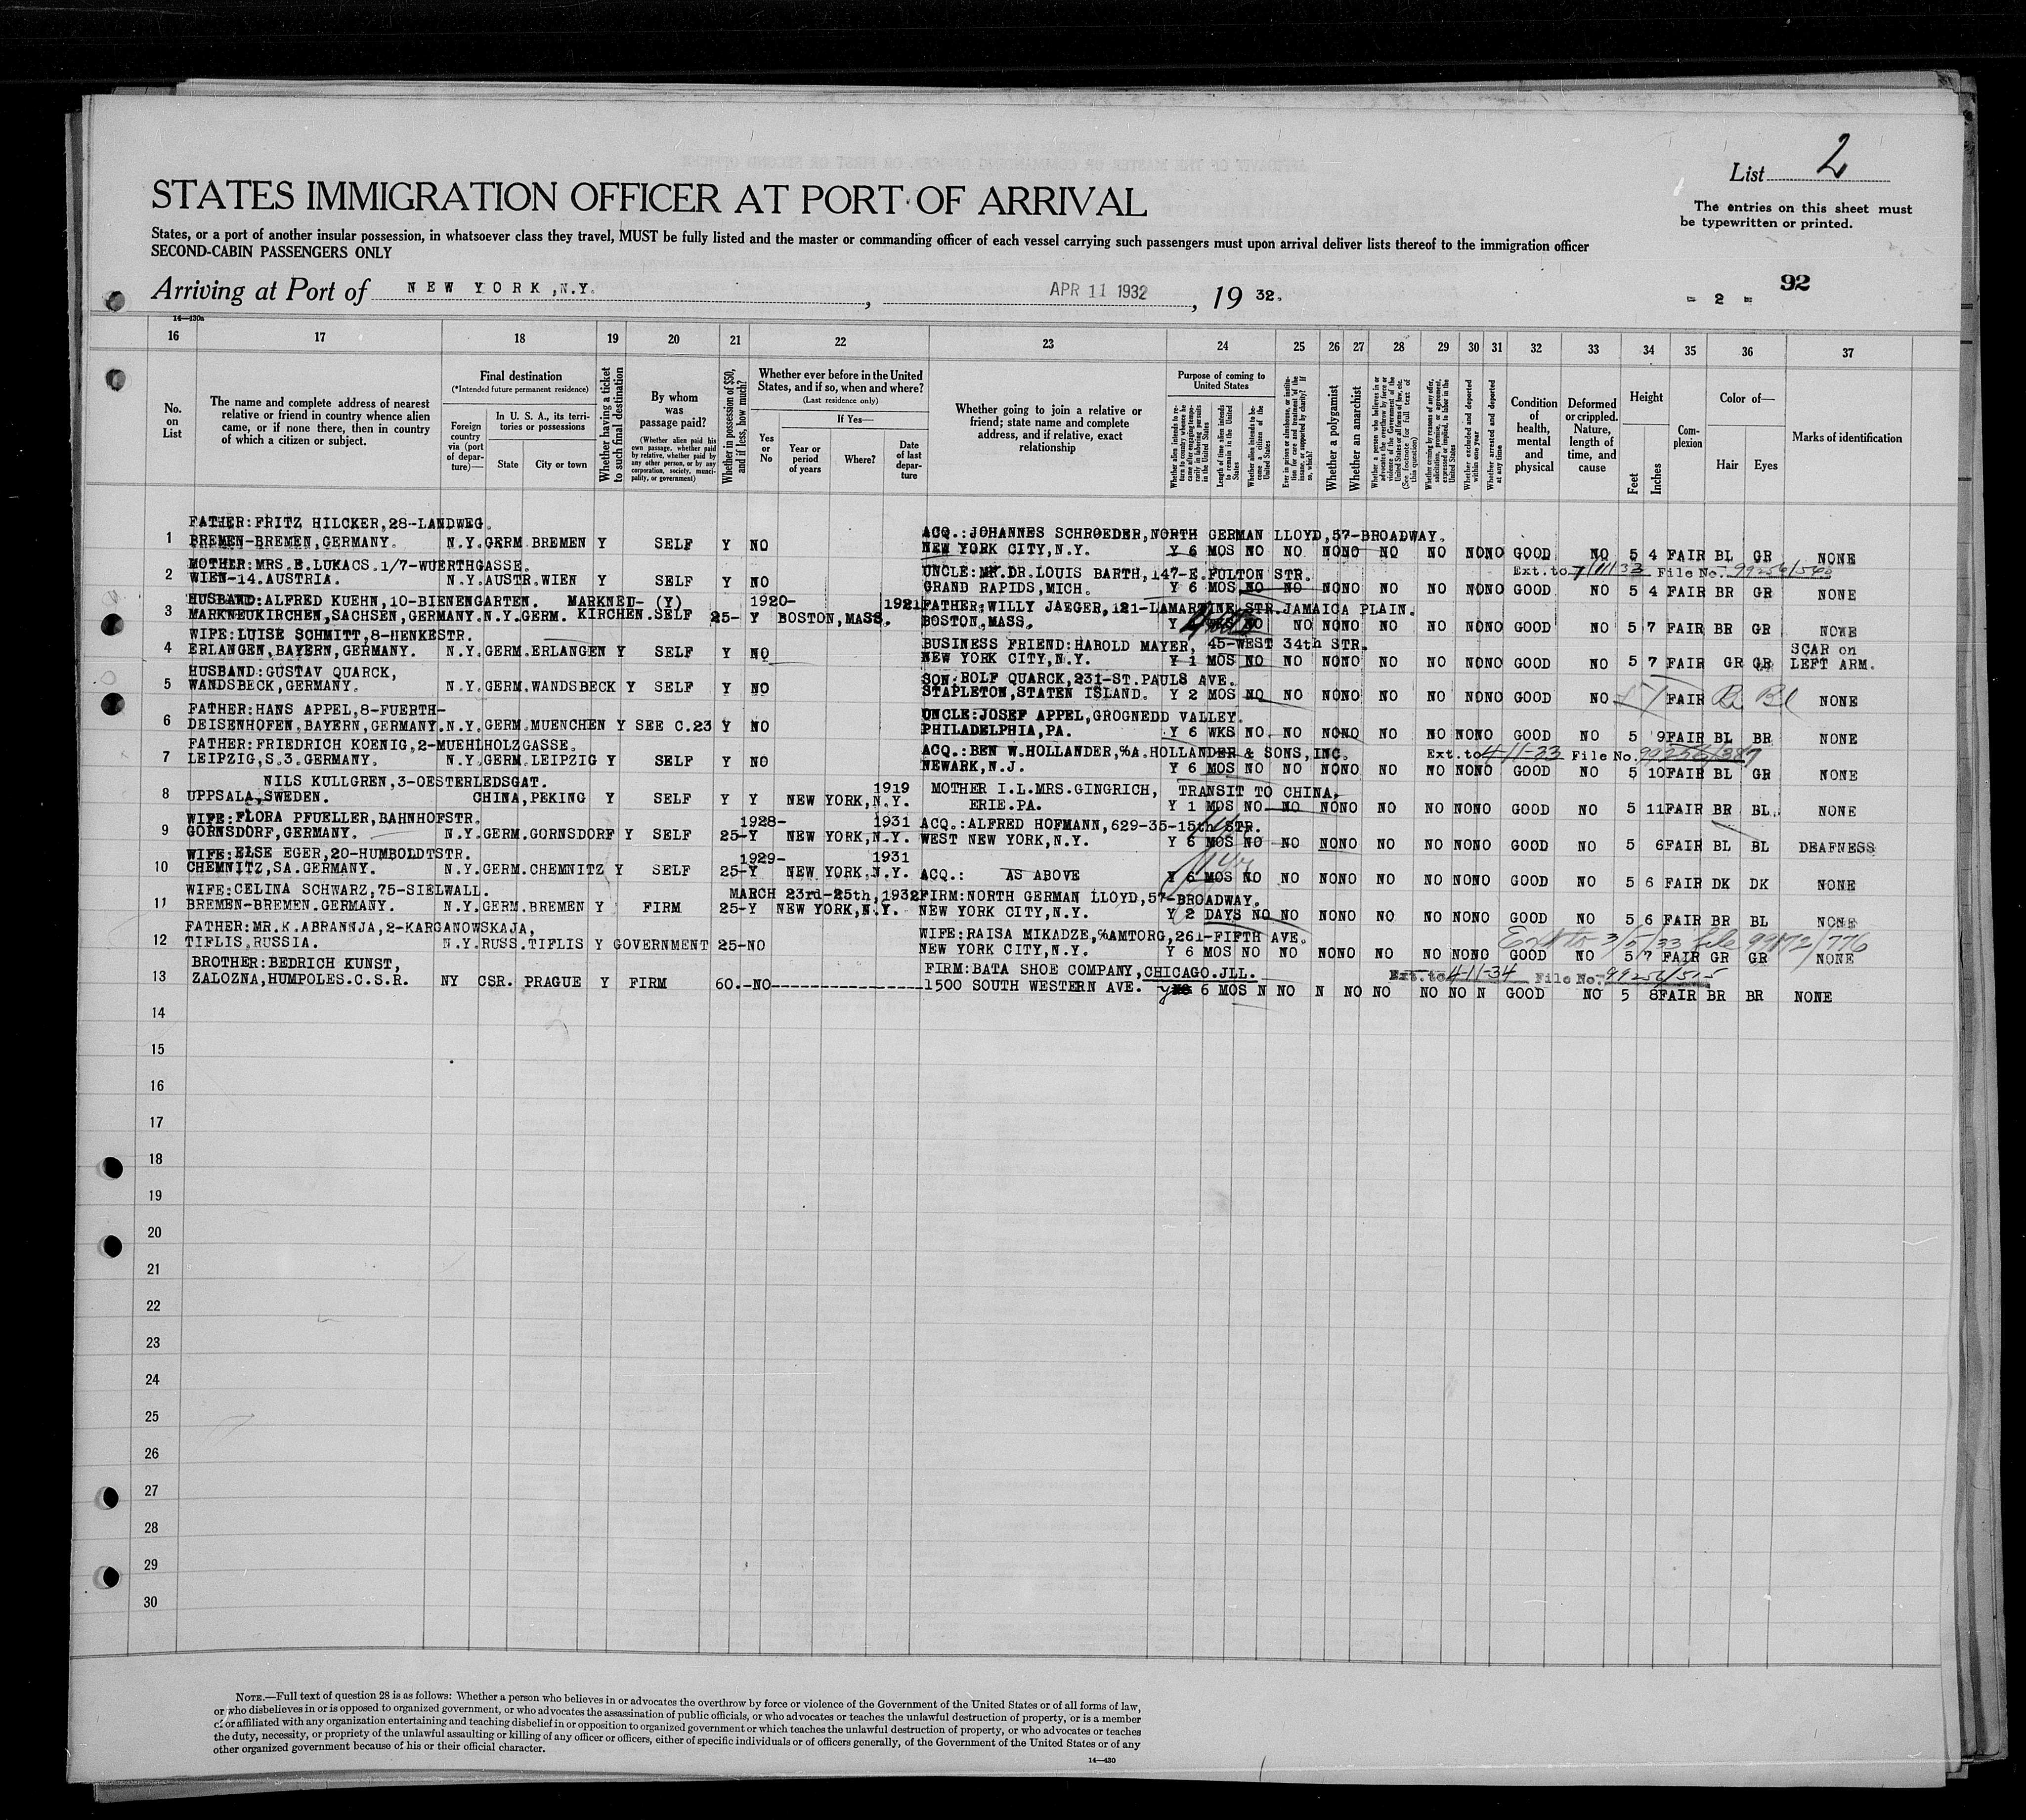 List 2
STATES IMMIGRATION OFFICER AT PORT OF ARRIVAL
The entries on this sheet must
be typewritten or printed.
States, or a port of another insular possession, in whatsoever class they travel, MUST be fully listed and the master or commanding officer of each vessel carrying such passengers must upon arrival deliver lists thereof to the immigration officer
SECOND-CABIN PASSENGERS ONLY
Arriving at Port of NEW YORK, N.Y. , APR 11 1932 , 19 32.
- 2 - 92
14—430a
16 17 18 19 20 21 22 23 24 25 26 27 28 29 30 31 32 33 34 35 36 37
No. on List
The name and complete address of nearest relative or friend in country whence alien came, or if none there, then in country of which a citizen or subject.
Final destination
(*Intended future permanent residence)
Foreign country via (port of departure)—
In U. S. A., its territories or possessions
State City or town
Whether having a ticket to such final destination
By whom was passage paid?
(Whether alien paid his own passage, whether paid by relative, whether paid by any other person, or by any corporation, society, municipality, or government)
Whether in possession of $50, and if less, how much?
Whether ever before in the United States, and if so, when and where?
(Last residence only)
Yes or No
If Yes—
Year or period of years
Where?
Date of last departure
Whether going to join a relative or friend; state name and complete address, and if relative, exact relationship
Purpose of coming to United States
Whether alien intends to return to country whence he came after engaging temporarily in laboring pursuits in the United States
Length of time alien intends to remain in the United States
Whether alien intends to become a citizen of the United States
Ever in prison or almshouse, or institution for care and treatment of the insane, or supported by charity? If so, which?
Whether a polygamist
Whether an anarchist
Whether a person who believes in or advocates the overthrow by force or violence of the Government of the United States or all forms of law, etc. (See footnote for full text of this question)
Whether coming by reason of any offer, solicitation, promise, or agreement, expressed or implied, to labor in the United States
Whether excluded and deported within one year
Whether arrested and deported at any time
Condition of health, mental and physical
Deformed or crippled. Nature, length of time, and cause
Height
Feet Inches
Complexion
Color of—
Hair Eyes
Marks of identification
FATHER:FRITZ HILCKER,28-LANDWEG.
ACQ.:JOHANNES SCHROEDER,NORTH GERMAN LLOYD,57-BROADWAY.
1 BREMEN-BREMEN,GERMANY. N.Y. GERM. BREMEN Y SELF Y NO NEW YORK CITY,N.Y. Y 6 MOS NO NO NONO NO NO NONO GOOD NO 5 4 FAIR BL GR NONE
MOTHER:MRS.B.LUKACS.1/7-WUERTHGASSE.
UNCLE: DR.LOUIS BARTH,147-E.FULTON STR. Ext.to 7/11/33 File No.
2 WIEN-14.AUSTRIA. N.Y.AUSTR.WIEN Y SELF Y NO GRAND RAPIDS,MICH. Y 6 MOS NO NO NONO NO NO NONO GOOD NO 5 4 FAIR BR GR NONE
HUSBAND:ALFRED KUEHN,10-BIENENGARTEN. MARKNEU- (Y) 1920- 1921 FATHER:WILLY JAEGER,121-LAMARTINE STR.JAMAICA PLAIN.
3 MARKNEUKIRCHEN,SACHSEN,GERMANY.N.Y.GERM. KIRCHEN.SELF 25- Y BOSTON,MASS. BOSTON,MASS. Y NO NO NONO NO NO NONO GOOD NO 5 7 FAIR BR GR NONE
WIFE:LUISE SCHMITT,8-HENKESTR.
BUSINESS FRIEND:HAROLD MAYER, 45-WEST 34th STR. SCAR on
4 ERLANGEN,BAYERN,GERMANY. N.Y.GERM.ERLANGEN Y SELF Y NO NEW YORK CITY,N.Y. Y 1 MOS NO NO NONO NO NO NONO GOOD NO 5 7 FAIR GR GR LEFT ARM.
HUSBAND:GUSTAV QUARCK,
SON:ROLF QUARCK,231-ST.PAULS AVE.
5 WANDSBECK,GERMANY. N.Y.GERM.WANDSBECK Y SELF Y NO STAPLETON,STATEN ISLAND. Y 2 MOS NO NO NONO NO NO NONO GOOD NO 5 1 FAIR Br Bl NONE
FATHER:HANS APPEL,8-FUERTH-
UNCLE:JOSEF APPEL,GROGNEDD VALLEY.
6 DEISENHOFEN,BAYERN,GERMANY.N.Y.GERM.MUENCHEN Y SEE C.23 Y NO PHILADELPHIA,PA. Y 6 WKS NO NO NONO NO NO NONO GOOD NO 5 9 FAIR BL BR NONE
FATHER:FRIEDRICH KOENIG,2-MUEHLHOLZGASSE.
ACQ.:BEN W.HOLLANDER,%A.HOLLANDER & SONS,INC. Ext.to 4-11-33 File No. 99256/387
7 LEIPZIG,S.3.GERMANY. N.Y.GERM.LEIPZIG Y SELF Y NO NEWARK,N.J. Y 6 MOS NO NO NONO NO NO NONO GOOD NO 5 10 FAIR BL GR NONE
NILS KULLGREN,3-OESTERLEDSGAT. 1919 MOTHER I.L.MRS.GINGRICH, TRANSIT TO CHINA.
8 UPPSALA,SWEDEN. CHINA,PEKING Y SELF Y Y NEW YORK,N.Y. ERIE.PA. Y 1 MOS NO NO NONO NO NO NONO GOOD NO 5 11 FAIR BR BL. NONE
WIFE:FLORA PFUELLER,BAHNHOFSTR. 1928- 1931 ACQ.:ALFRED HOFMANN,629-35-15th STR.
9 GORNSDORF,GERMANY. N.Y.GERM.GORNSDORF Y SELF 25-Y NEW YORK,N.Y. WEST NEW YORK,N.Y. Y 6 MOS NO NO NONO NO NO NONO GOOD NO 5 6 FAIR BL BL DEAFNESS
WIFE:ELSE EGER,20-HUMBOLDTSTR. 1929- 1931
10 CHEMNITZ,SA.GERMANY. N.Y.GERM.CHEMNITZ Y SELF 25-Y NEW YORK,N.Y. ACQ.: AS ABOVE Y 6 MOS NO NO NONO NO NO NONO GOOD NO 5 6 FAIR DK DK NONE
WIFE:CELINA SCHWARZ,75-SIELWALL. MARCH 23rd-25th,1932 FIRM:NORTH GERMAN LLOYD,57-BROADWAY.
11 BREMEN-BREMEN.GERMANY. N.Y.GERM.BREMEN Y FIRM 25-Y NEW YORK,N.Y. NEW YORK CITY,N.Y. Y 2 DAYS NO NO NONO NO NO NONO GOOD NO 5 6 FAIR BR BL NONE
FATHER:MR.K.ABRANNJA,2-KARGANOWSKAJA,
WIFE:RAISA MIKADZE,%AMTORG,261-FIFTH AVE. Ext to 3/5/33 file 99172/776
12 TIFLIS,RUSSIA. N.Y.RUSS.TIFLIS Y GOVERNMENT 25-NO NEW YORK CITY,N.Y. Y 6 MOS NO NO NONO NO NO NONO GOOD NO 5 7 FAIR GR GR NONE
BROTHER:BEDRICH KUNST,
FIRM:BATA SHOE COMPANY,CHICAGO.JLL. Ext.to 4-11-34 File No. 99256/515
13 ZALOZNA,HUMPOLES.C.S.R. NY CSR. PRAGUE Y FIRM 60.-NO----------------- 1500 SOUTH WESTERN AVE. y 6 MOS N NO N NO NO NO NO N GOOD NO 5 8 FAIR BR BR NONE
14
15
16
17
18
19
20
21
22
23
24
25
26
27
28
29
30
NOTE.—Full text of question 28 is as follows: Whether a person who believes in or advocates the overthrow by force or violence of the Government of the United States or of all forms of law,
or who disbelieves in or is opposed to organized government, or who advocates the assassination of public officials, or who advocates or teaches the unlawful destruction of property, or is a member
of or affiliated with any organization entertaining and teaching disbelief in or opposition to organized government or which teaches the unlawful destruction of property, or who advocates or teaches
the duty, necessity, or propriety of the unlawful assaulting or killing of any officer or officers, either of specific individuals or of officers generally, of the Government of the United States or of any
other organized government because of his or their official character.
14—430